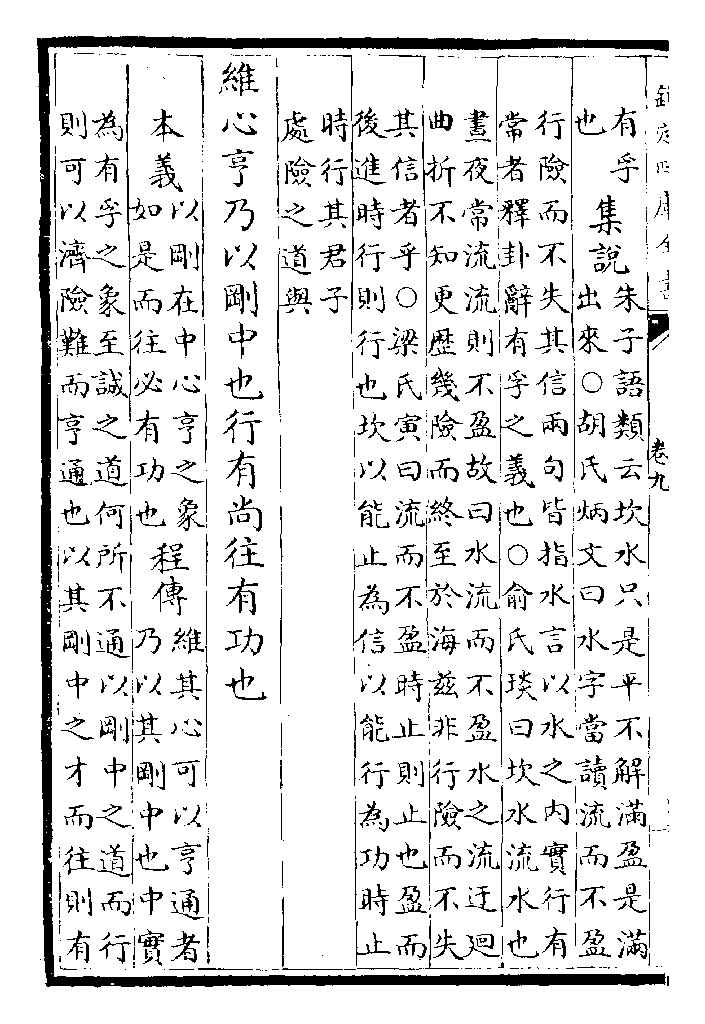 欽定四庫全書
卷九
有孚
也
集說
朱子語類云坎水只是平不解滿盈是滿
出來○胡氏炳文曰水字當讀流而不盈
行險而不失其信兩句皆指水言以水之内實行有
常者釋卦辭有孚之義也○俞氏琰曰坎水流水也
晝夜常流流則不盈故曰水流而不盈水之流迂迴
曲折不知更歴幾險而終至於海兹非行險而不失
其信者乎○梁氏寅曰流而不盈時止則止也盈而
後進時行則行也坎以能止為信以能行為功時止
時行其君子
處險之道與
維心亨乃以剛中也行有尚往有功也
本義
以剛在中心亨之象
如是而往必有功也
程傳
維其心可以亨通者
乃以其剛中也中實
為有孚之象至誠之道何所不通以剛中之道而行
則可以濟險難而亨通也以其剛中之才而往則有